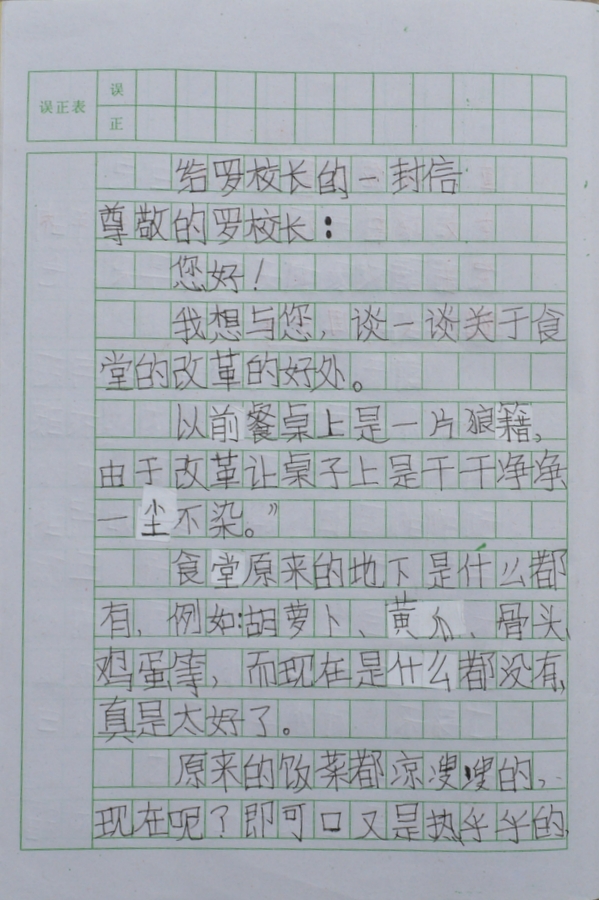 误正表
误
正
给罗校长的一封信
尊敬的罗校长：
您好！
我想与您，谈一谈关于食
堂的改革的好处。
以前餐桌上是一片狼籍，
由于改革让桌子上是干干净净
一尘不染。”
食堂原来的地下是什么都
有，例如：胡萝卜、黄瓜、骨头、
鸡蛋等，而现在是什么都没有，
真是太好了。
原来的饭菜都凉嗖嗖的，
现在呢？即可口又是热乎乎的，